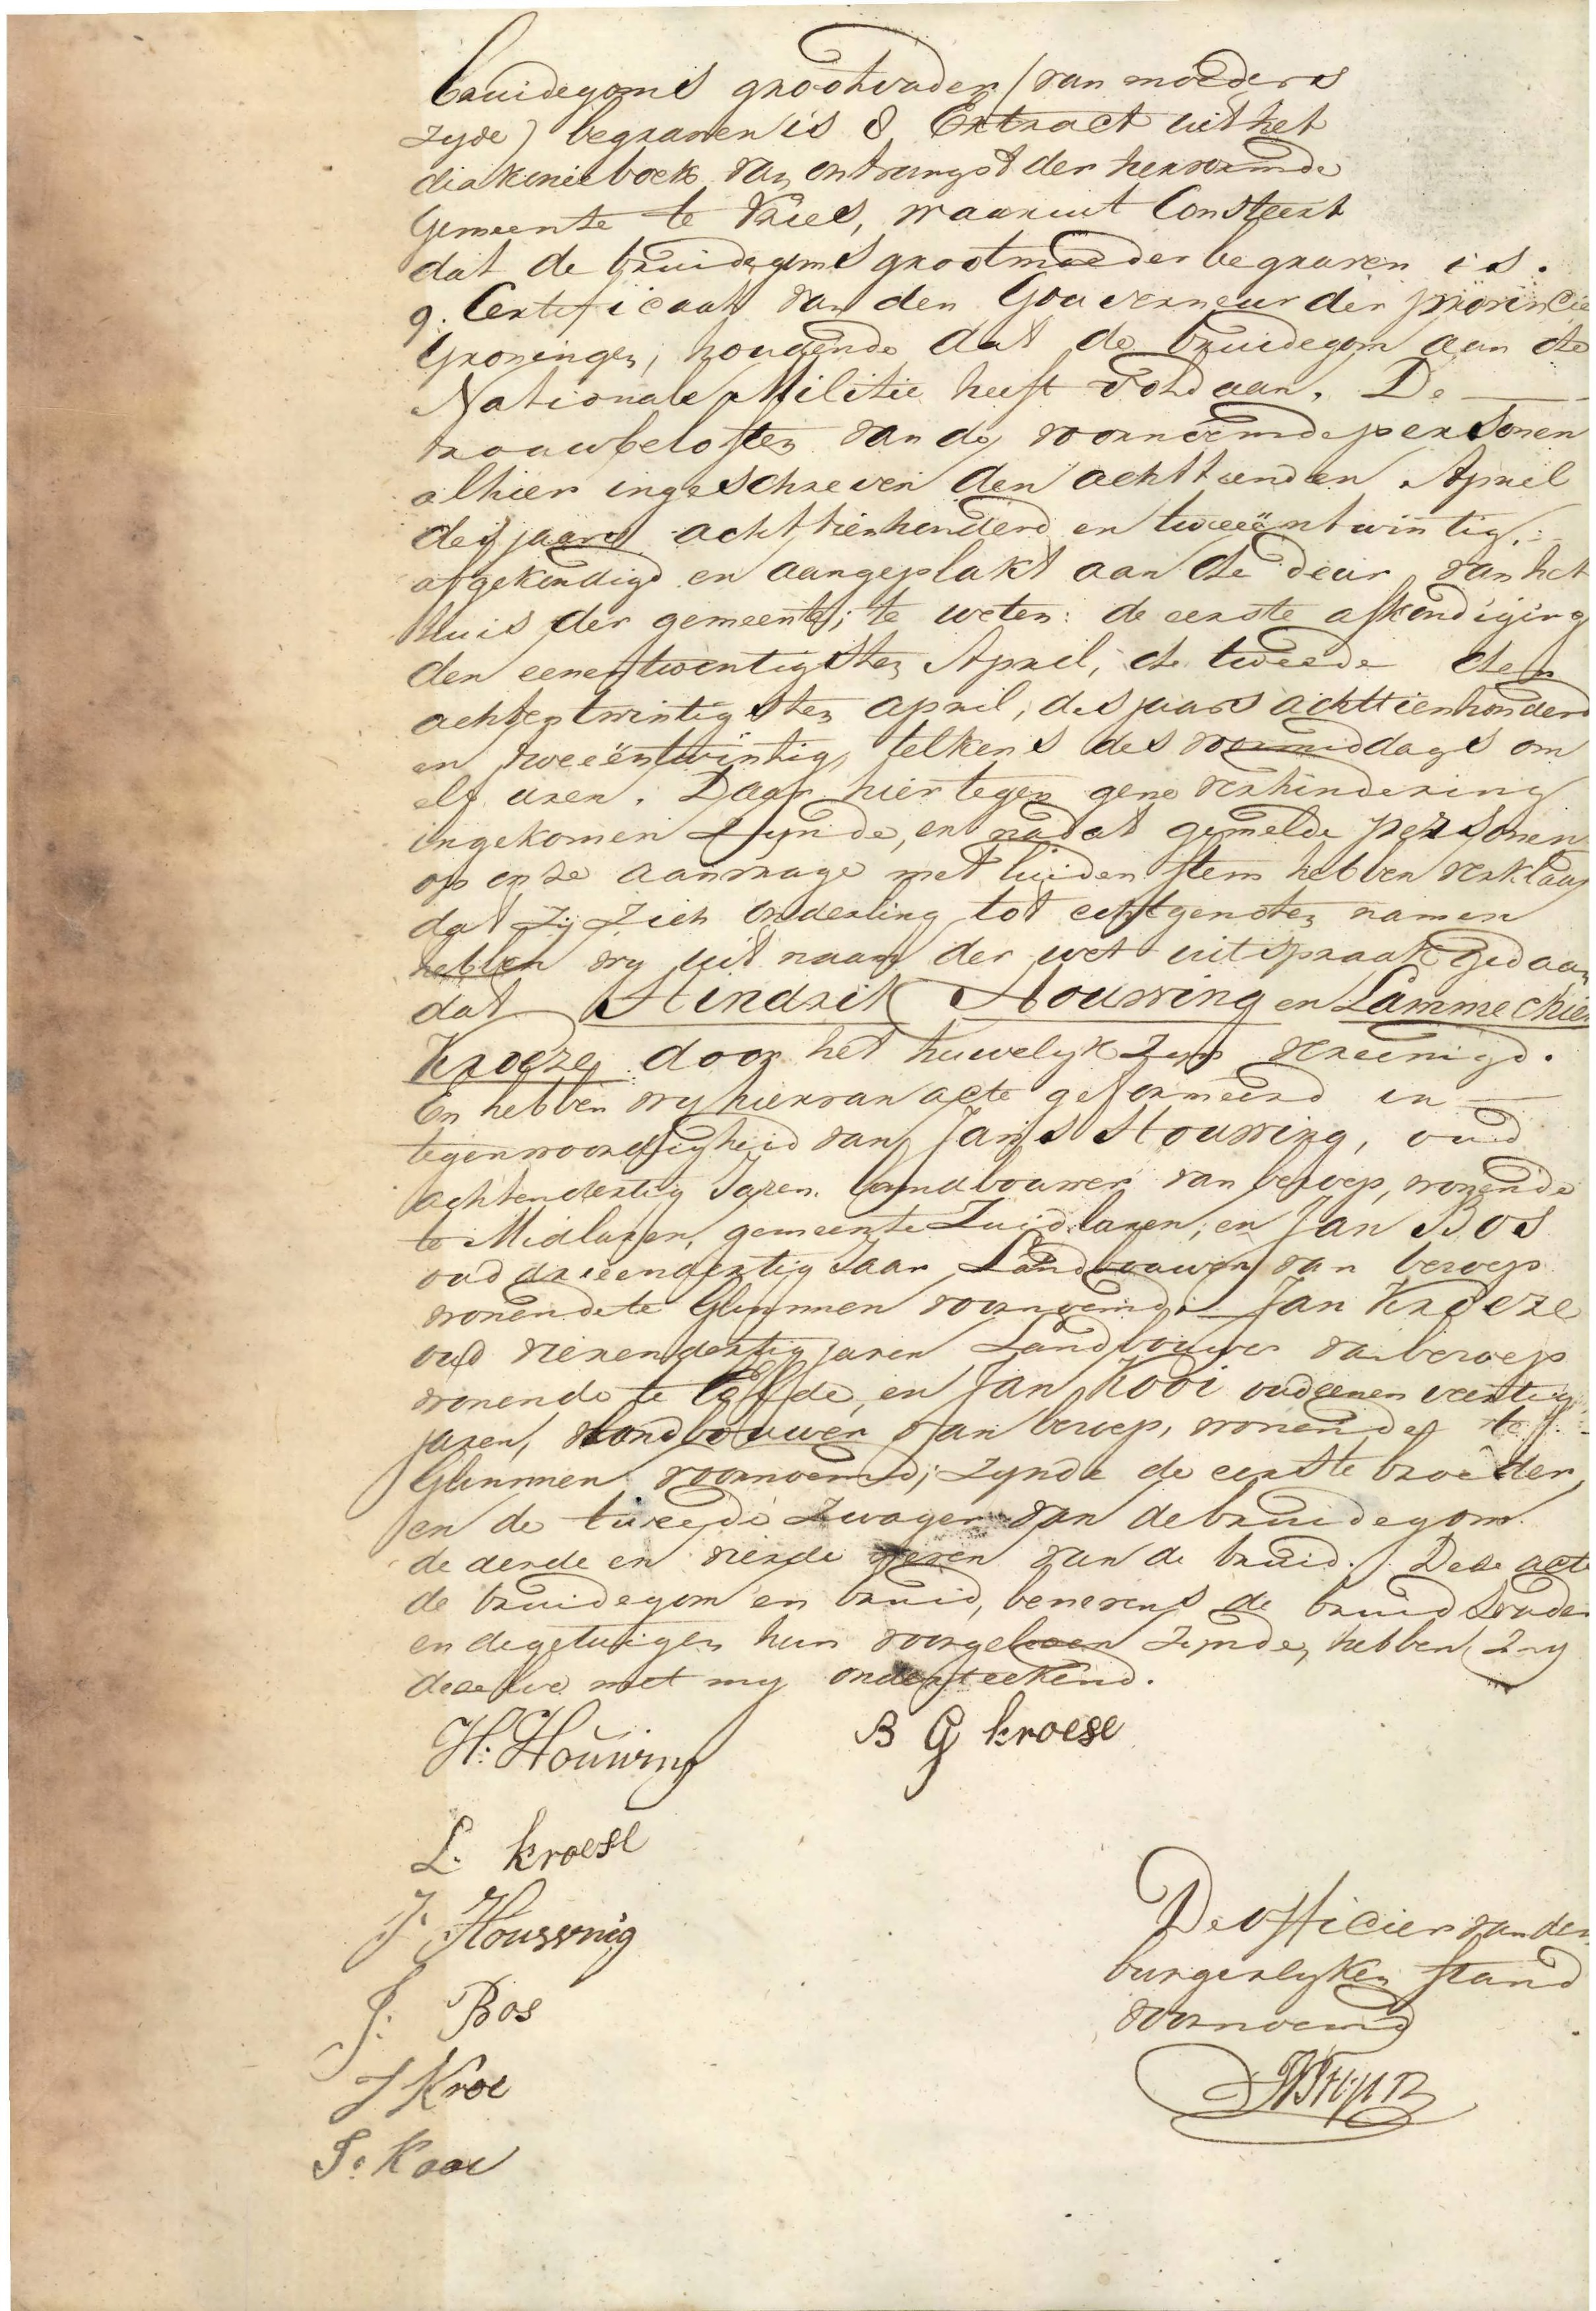 bruidegoms grootvader (van moeders
zyde) begraven is 8 Extract uit het
diakonieboek van ontvangst der hervormde
Gemeente te Vries, waaruit Consteert
dat de bruidegoms grootmoeder begraven is.
9. Certificaat van den Gouverneur der provincie
Groningen, houdende dat de bruidegom aan de
Nationale Militie heeft voldaan. De
trouwbeloften van de voornoemde personen
alhier ingeschreven den achttienden April
des jaars achttienhonderd en tweeëntwintig,
afgekondigd en aangeplakt aan de deur van het
huis der gemeente; te weten: de eerste afkondiging
den eenentwentigsten April, de tweede den
achtentwintigsten april, des jaars achttienhonderd
en tweeëntwintig, telkens des voormiddags om
elf uren. Daar hiertegen gene verhindering
ingekomen zynde, en nadat gemelde personen
op onze aanvrage met luider stem hebben verklaard
dat zy zich onderling tot echtgenoten namen
hebben wy uit naam der wet uitspraak gedaan
dat Hindrik Houwing en Lammechien
Kroeze door het huwelyk zyn vereenigd.
En hebben wy hiervan acte geformeerd in
tegenwoordigheid van Jans Houwing, oud
achtendertig Jaren landbouwer van beroep, wonende
te Midlaren, gemeente Zuidlaren, en Jan Bos
oud drieendertig Jaar Landbouwer van beroep
wonende te Glimmen voornoemd Jan Kroeze
oud vierendertig jaren Landbouwer van beroep
wonende te Eelde, en Jan Kooi oud eenen veertig
jaren, landbouwer van beroep, wonende te
Glimmen voornoemd; zynde de eerste broeder,
en de tweede zwager van de bruidegom
de derde en vierde neven van de bruid. Deze acte
de bruidegom en bruid, benevens de bruids vader
en de getuigen hun voorgelezen zynde, hebben zy
dezelve met my onderteekend.
H: Houwing B G kroese
L. kroese
J: Houwing
J: Bos
J Kroe
J: Kooi
De officier van den
burgerlyken stand
voornoemd